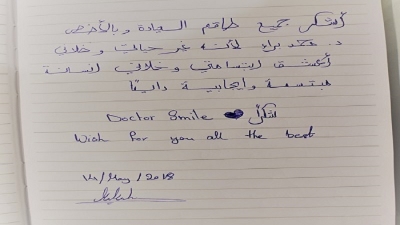 أشكر جميع طاقم العيادة وبالأخص
د. محمد براء لأنه غير حياتي وخلاني
أعشق ابتسامتي وخلاني انسانة
مبتسمة وإيجابية دايمًا
Doctor Smile شكرًا
Wish for you all the best
14/May/2018